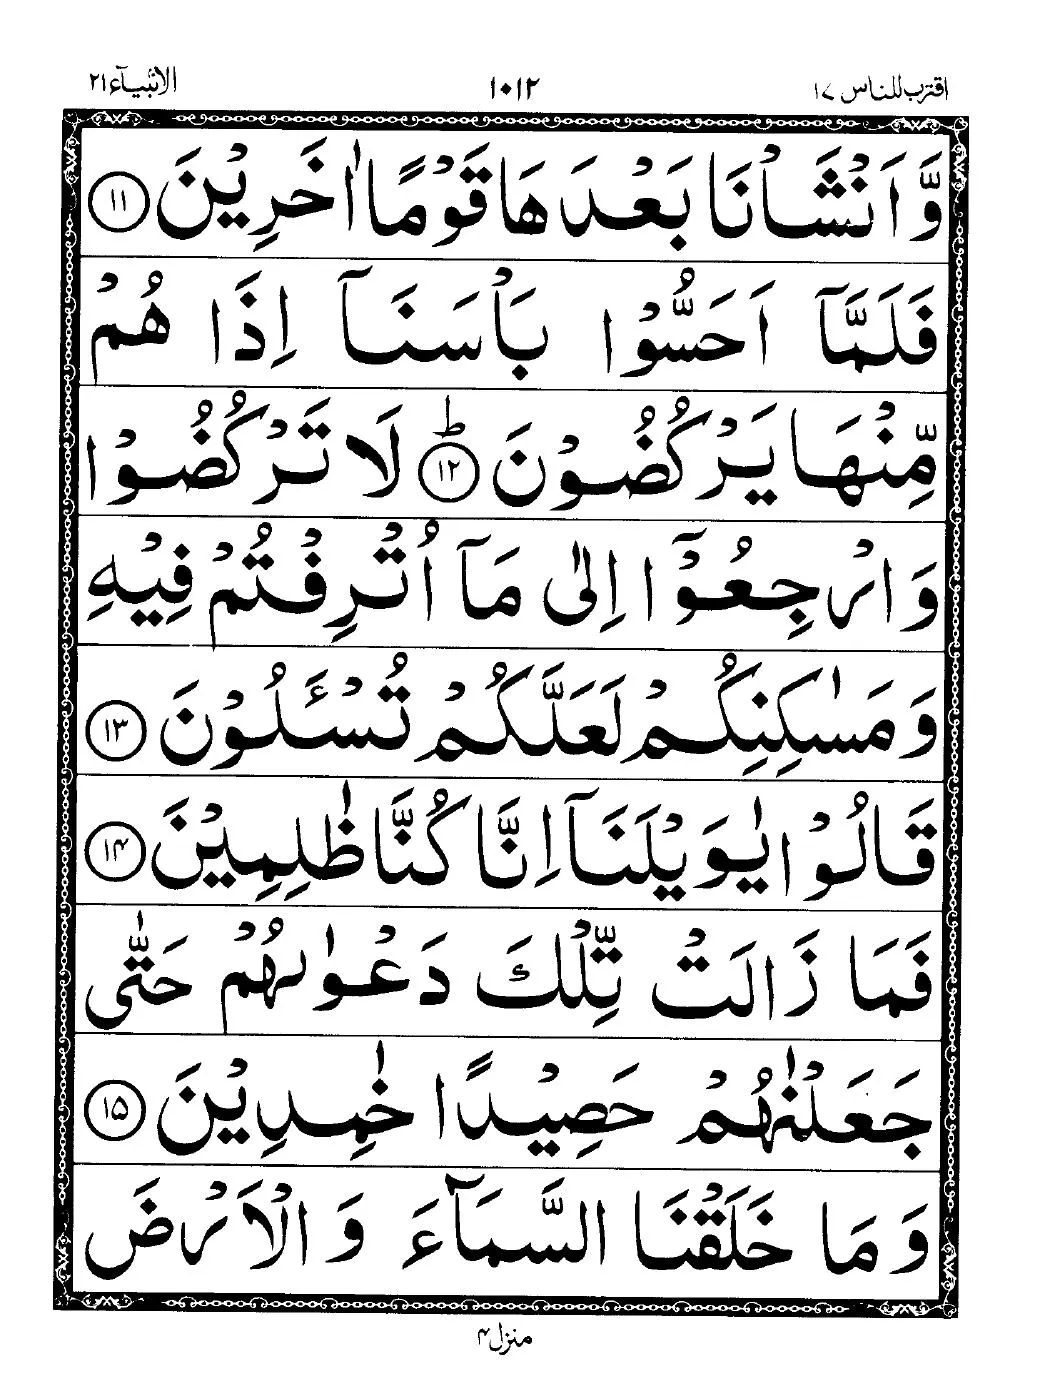 اقترب للناس ١٧
١٠١٢
الانبیآء ٢١
وَّ اَنْشَاْنَا بَعْدَهَا قَوْمًا اٰخَرِیْنَ ١١
فَلَمَّاۤ اَحَسُّوْا بَاْسَنَاۤ اِذَا هُمْ
مِّنْهَا یَرْكُضُوْنَ ؕ ١٢ لَا تَرْكُضُوْا
وَ ارْجِعُوْۤا اِلٰى مَاۤ اُتْرِفْتُمْ فِیْهِ
وَ مَسٰكِنِكُمْ لَعَلَّكُمْ تُسْـَٔلُوْنَ ١٣
قَالُوْا یٰوَیْلَنَاۤ اِنَّا كُنَّا ظٰلِمِیْنَ ١٤
فَمَا زَالَتْ تِّلْكَ دَعْوٰىهُمْ حَتّٰى
جَعَلْنٰهُمْ حَصِیْدًا خٰمِدِیْنَ ١٥
وَ مَا خَلَقْنَا السَّمَآءَ وَ الْاَرْضَ
منزل ۴